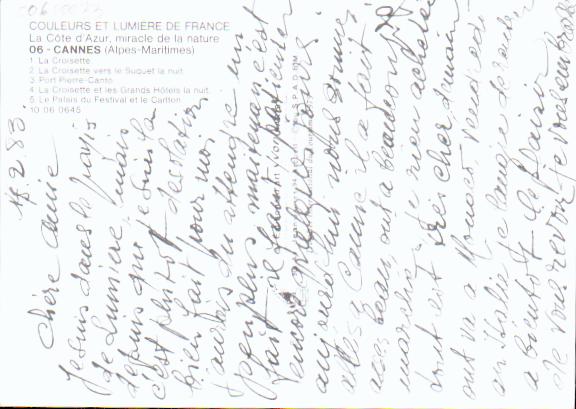 COULEURS ET LUMIÈRE DE FRANCE
La Côte d'Azur, miracle de la nature
06 - CANNES (Alpes-Maritimes)
1 La Croisette
2 La Croisette vers le Suquet la nuit
3 Port Pierre-Canto
4 La Croisette et les Grands Hôtels la nuit
5 Le Palais du Festival et le Carlton
10 06 0645
18.2.83.
Chère Amie
Je suis dans le Pays
de Lumière, mais
depuis que je suis là
c'est plutôt desolation
bien fait pour moi
j'aurais du attendre un
peu plus maintenant c'est
fait il faut patienter
encore quelques jours
aujourd'hui nous sommes
allés a Cannes il a fait
assez beau, ont a beaucoup
marcher, je n'ai rien acheter
tout est très cher, demain
ont va a Monaco, vendredi
en Italie
a bientôt le plaisir
de vous revoir je vous embrasse